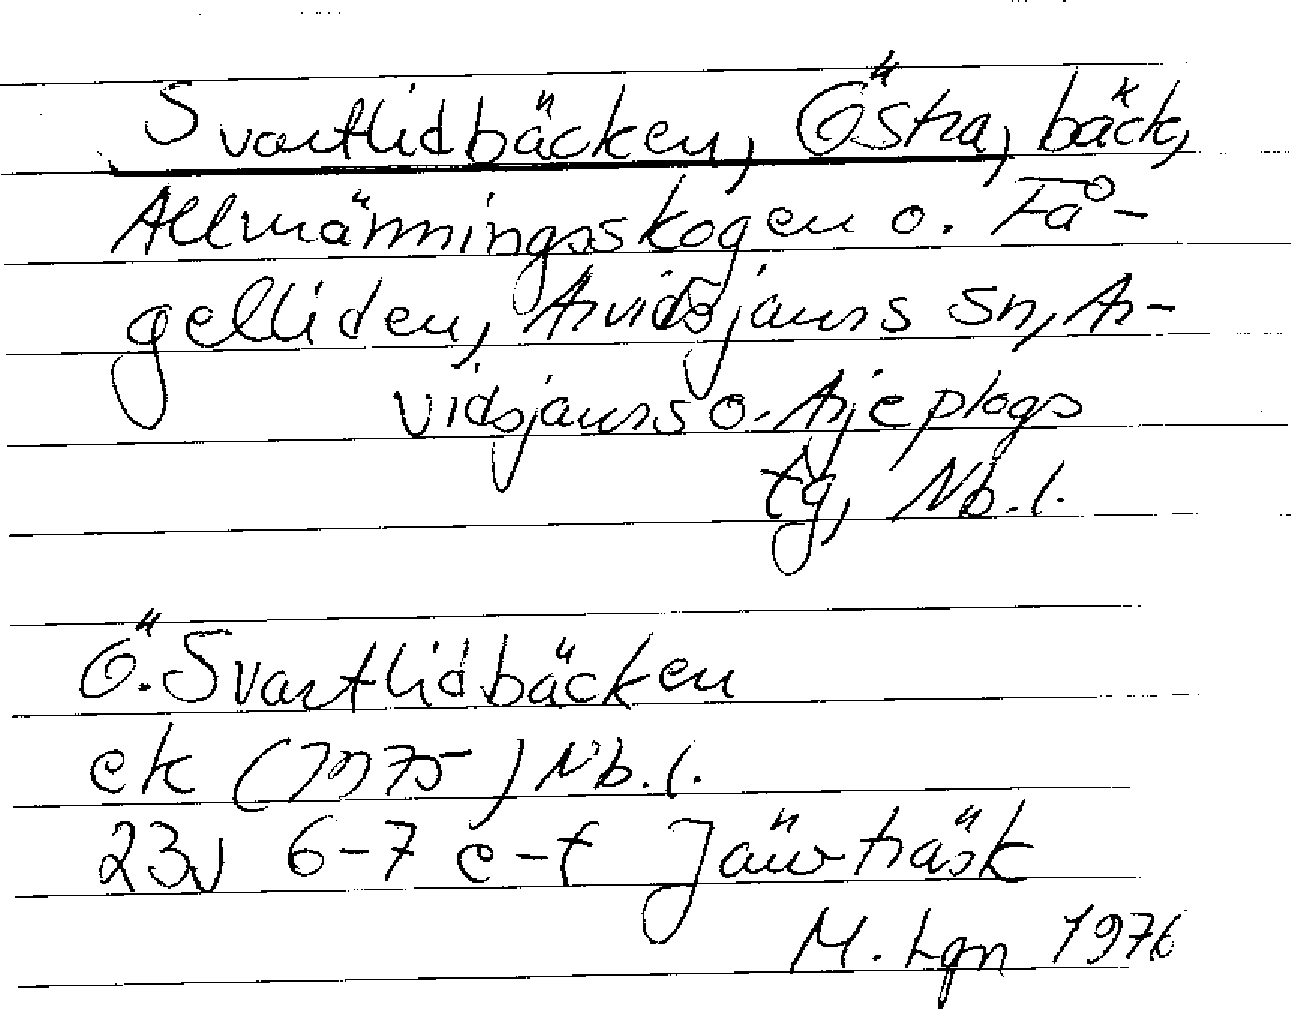 Svartlidbäcken, Östra, bäck,
Allmänningsskogen o. Få-
gelliden, Arvidsjaurs sn, Ar-
vidsjaurs o. Arjeplogs
tg, Nb. l.
Ö. Svartlidbäcken
ek (1975) Nb. l.
23J 6-7 e-f Järvträsk
M. Lgn 1976